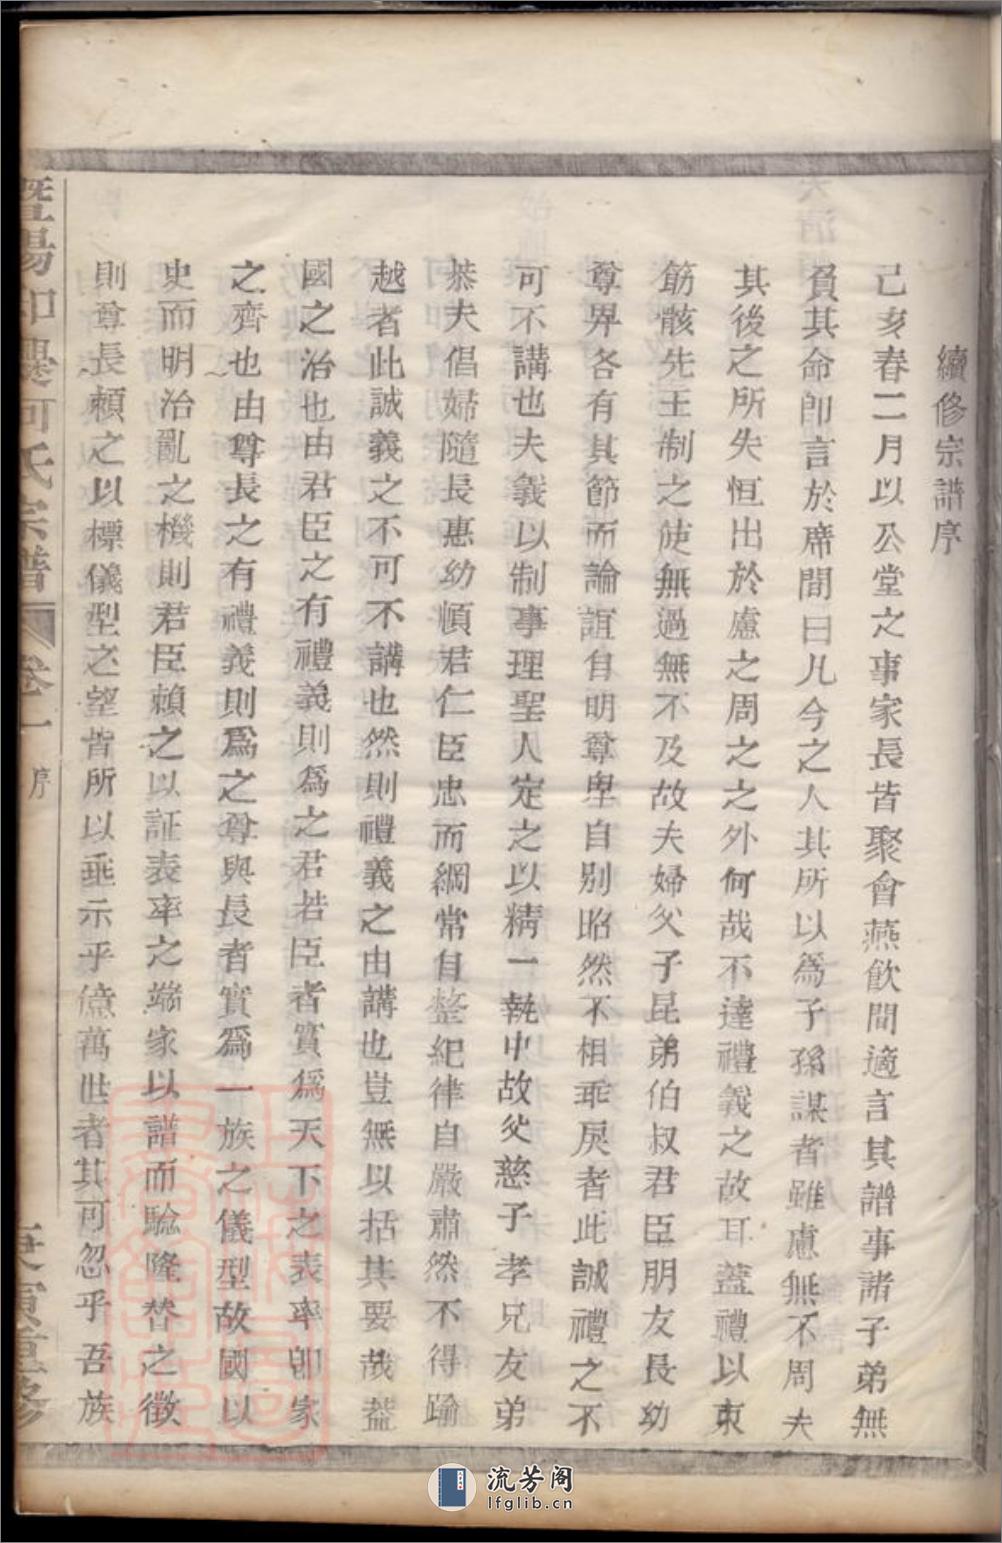 續修宗譜序
己亥春二月以公堂之事家長皆聚會燕飲間適言其譜事諸子弟無
負其命卽言於席間曰凡今之人其所以爲子孫謀者雖慮無不周夫
其後之所失恒出於慮之周之之外何哉不達禮義之故耳蓋禮以束
筋骸先王制之使無過無不及故夫婦父子昆弟伯叔君臣朋友長幼
尊畀各有其節而論誼自明尊卑自別昭然不相乖戾者此誠禮之不
可不講也夫義以制事理聖人定之以精一執中故父慈子孝兄友弟
恭夫倡婦隨長惠幼順君仁臣忠而綱常自整紀律自嚴肅然不得踰
越者此誠義之不可不講也然則禮義之由講也豈無以括其要哉蓋
國之治也由君臣之有禮義則爲之君若臣者實爲天下之表率卽家
之齊也由尊長之有禮義則爲之尊與長者實爲一族之儀型故國以
史而明治亂之機則君臣賴之以証表率之端家以譜而驗隆替之徵
則尊長賴之以標儀型之望皆所以垂示乎億萬世者其可忽乎吾族
暨陽和墨何氏宗譜 卷一 序
重修
流芳阁
lfglib.cn